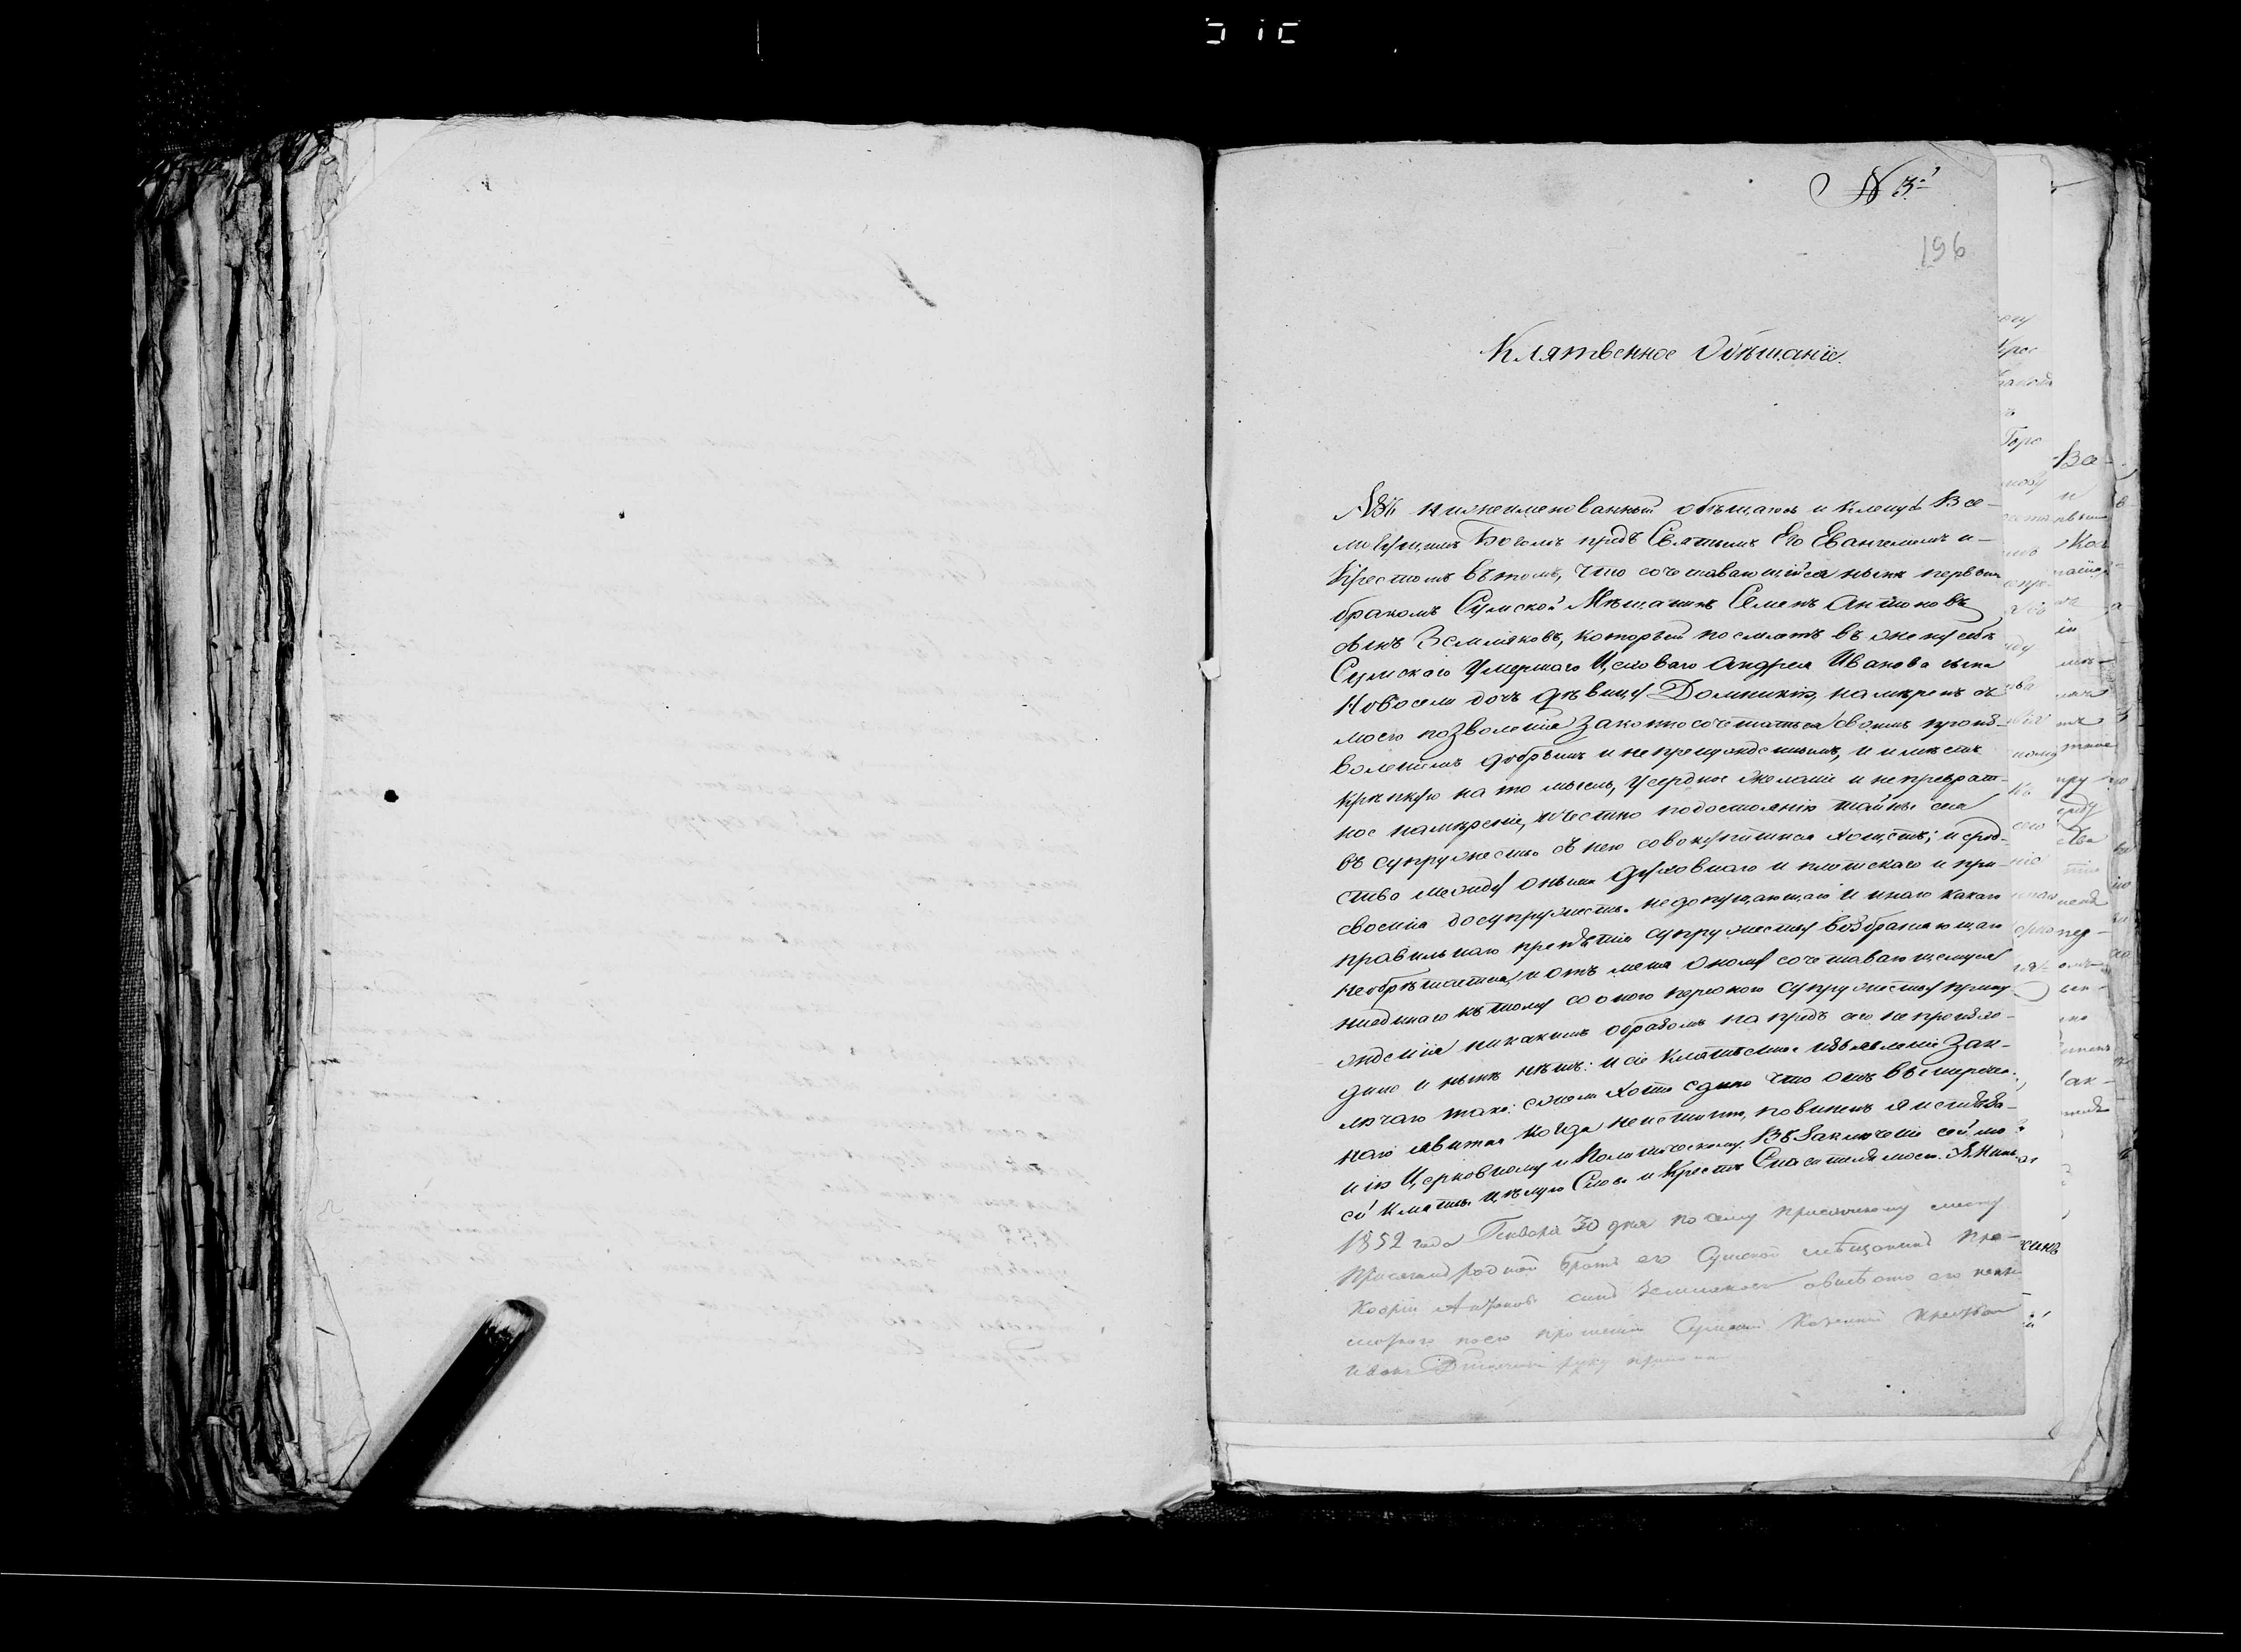 N 3й
196
Клятвенное Обѣщаніе.
Азъ нижеименованный обѣщаюсь и кленусь Все-
могущимъ Богомъ предъ Святымъ Его Евангелиемъ и
Крестомъ въ томъ, что сочетавающійся нынѣ первымъ
бракомъ Сумской Мѣщанинъ Семенъ Антоновъ
сынъ Земляковъ, который поемлетъ въ жену себѣ
Сумскаго Умершаго Цеховаго Андрея Иванова сына
Новосела дочь дѣвицу Домникію, намѣренъ съ
моего позволенія законно сочетаться своимъ произ-
воленіемъ добрымъ и непренужденнымъ, и имѣетъ
крѣпкую на то мысль, усердное желаніе и непреврат-
ное намѣреніе, честно по достоянію тайны сея
въ супружество съ нею совокупитися хощетъ; и срод-
ства между оными духовнаго и плотскаго и при-
своенія до супружества недопущающаго и инаго какаго
правильнаго препятія супружеству возбраняющаго
необрѣтается, и отъ мена оному сочетавающемуся
ніединаго къ тому со оною персоною супружеству прину-
жденія никакимъ образомъ напредъ сего не происхо-
дило и нынѣ нѣтъ: и сіе клятвенное изъявленіе зак-
лючаю тако: ежели хотя едино что отъ вышерече-
наго явится когда неистинно, повиненъ я истяза-
нію Церковному и Политическому. Въ Заключеніе сей мо-
ей Клятвы цѣлую Слова и Крестъ Спасителя моего. Аминь
1852 года Генваря 30 дня по сему присяжному листу
Присягалъ родной братъ его Сумской мѣщанинъ Про-
кофій Антоновъ сынъ Земляковъ а вмѣсто его негра-
мотнаго по его прошенію Сумской
Иванъ руку приложилъ